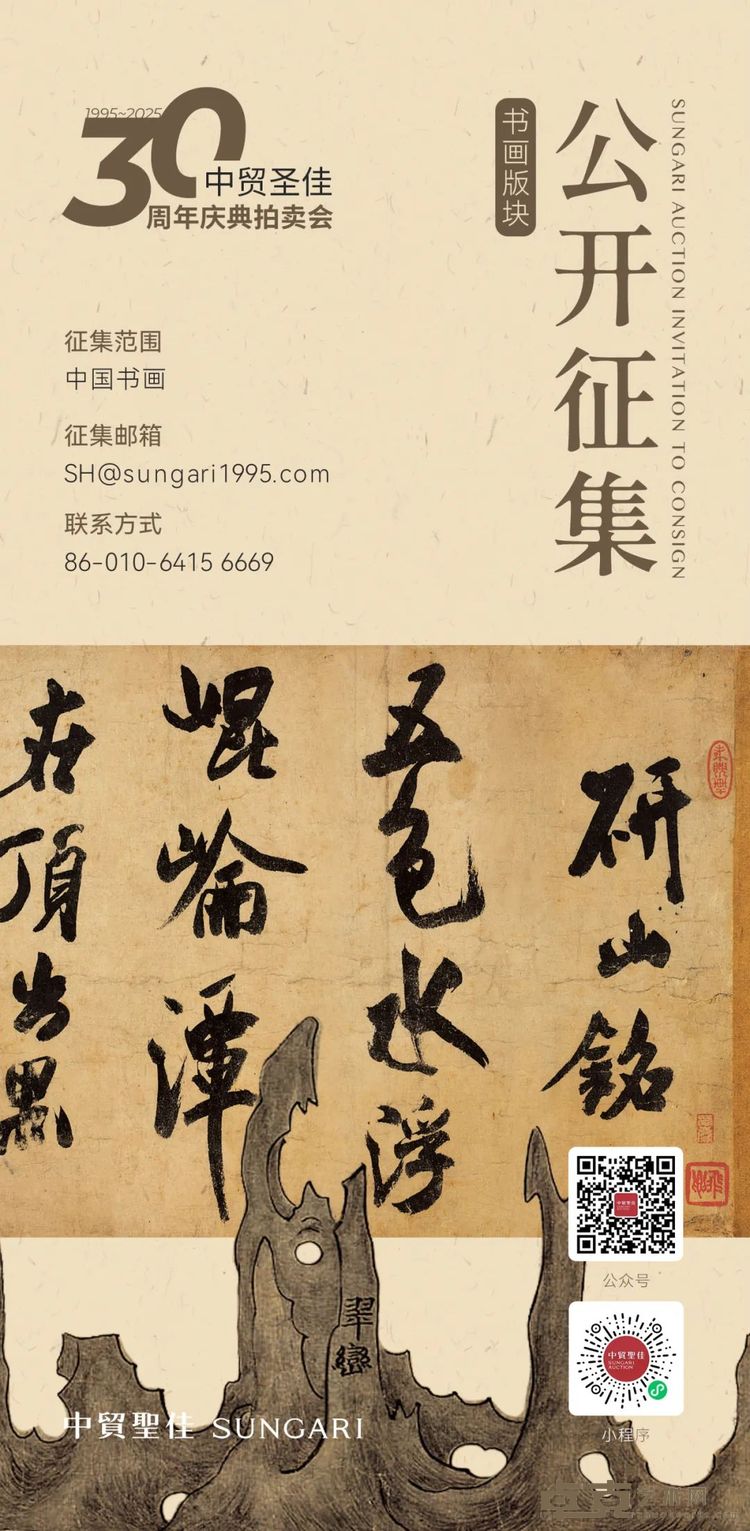 1995~2025
30
中贸圣佳
周年庆典拍卖会
书画版块
公开征集
SUNGARI AUCTION INVITATION TO CONSIGN
征集范围
中国书画
征集邮箱
SH@sungari1995.com
联系方式
86-010-6415 6669
研山銘
五色水浮
崐崘潭
在頂出黑
翠巒
中貿聖佳
公众号
中貿聖佳
SUNGARI
AUCTION
小程序
中貿聖佳 SUNGARI